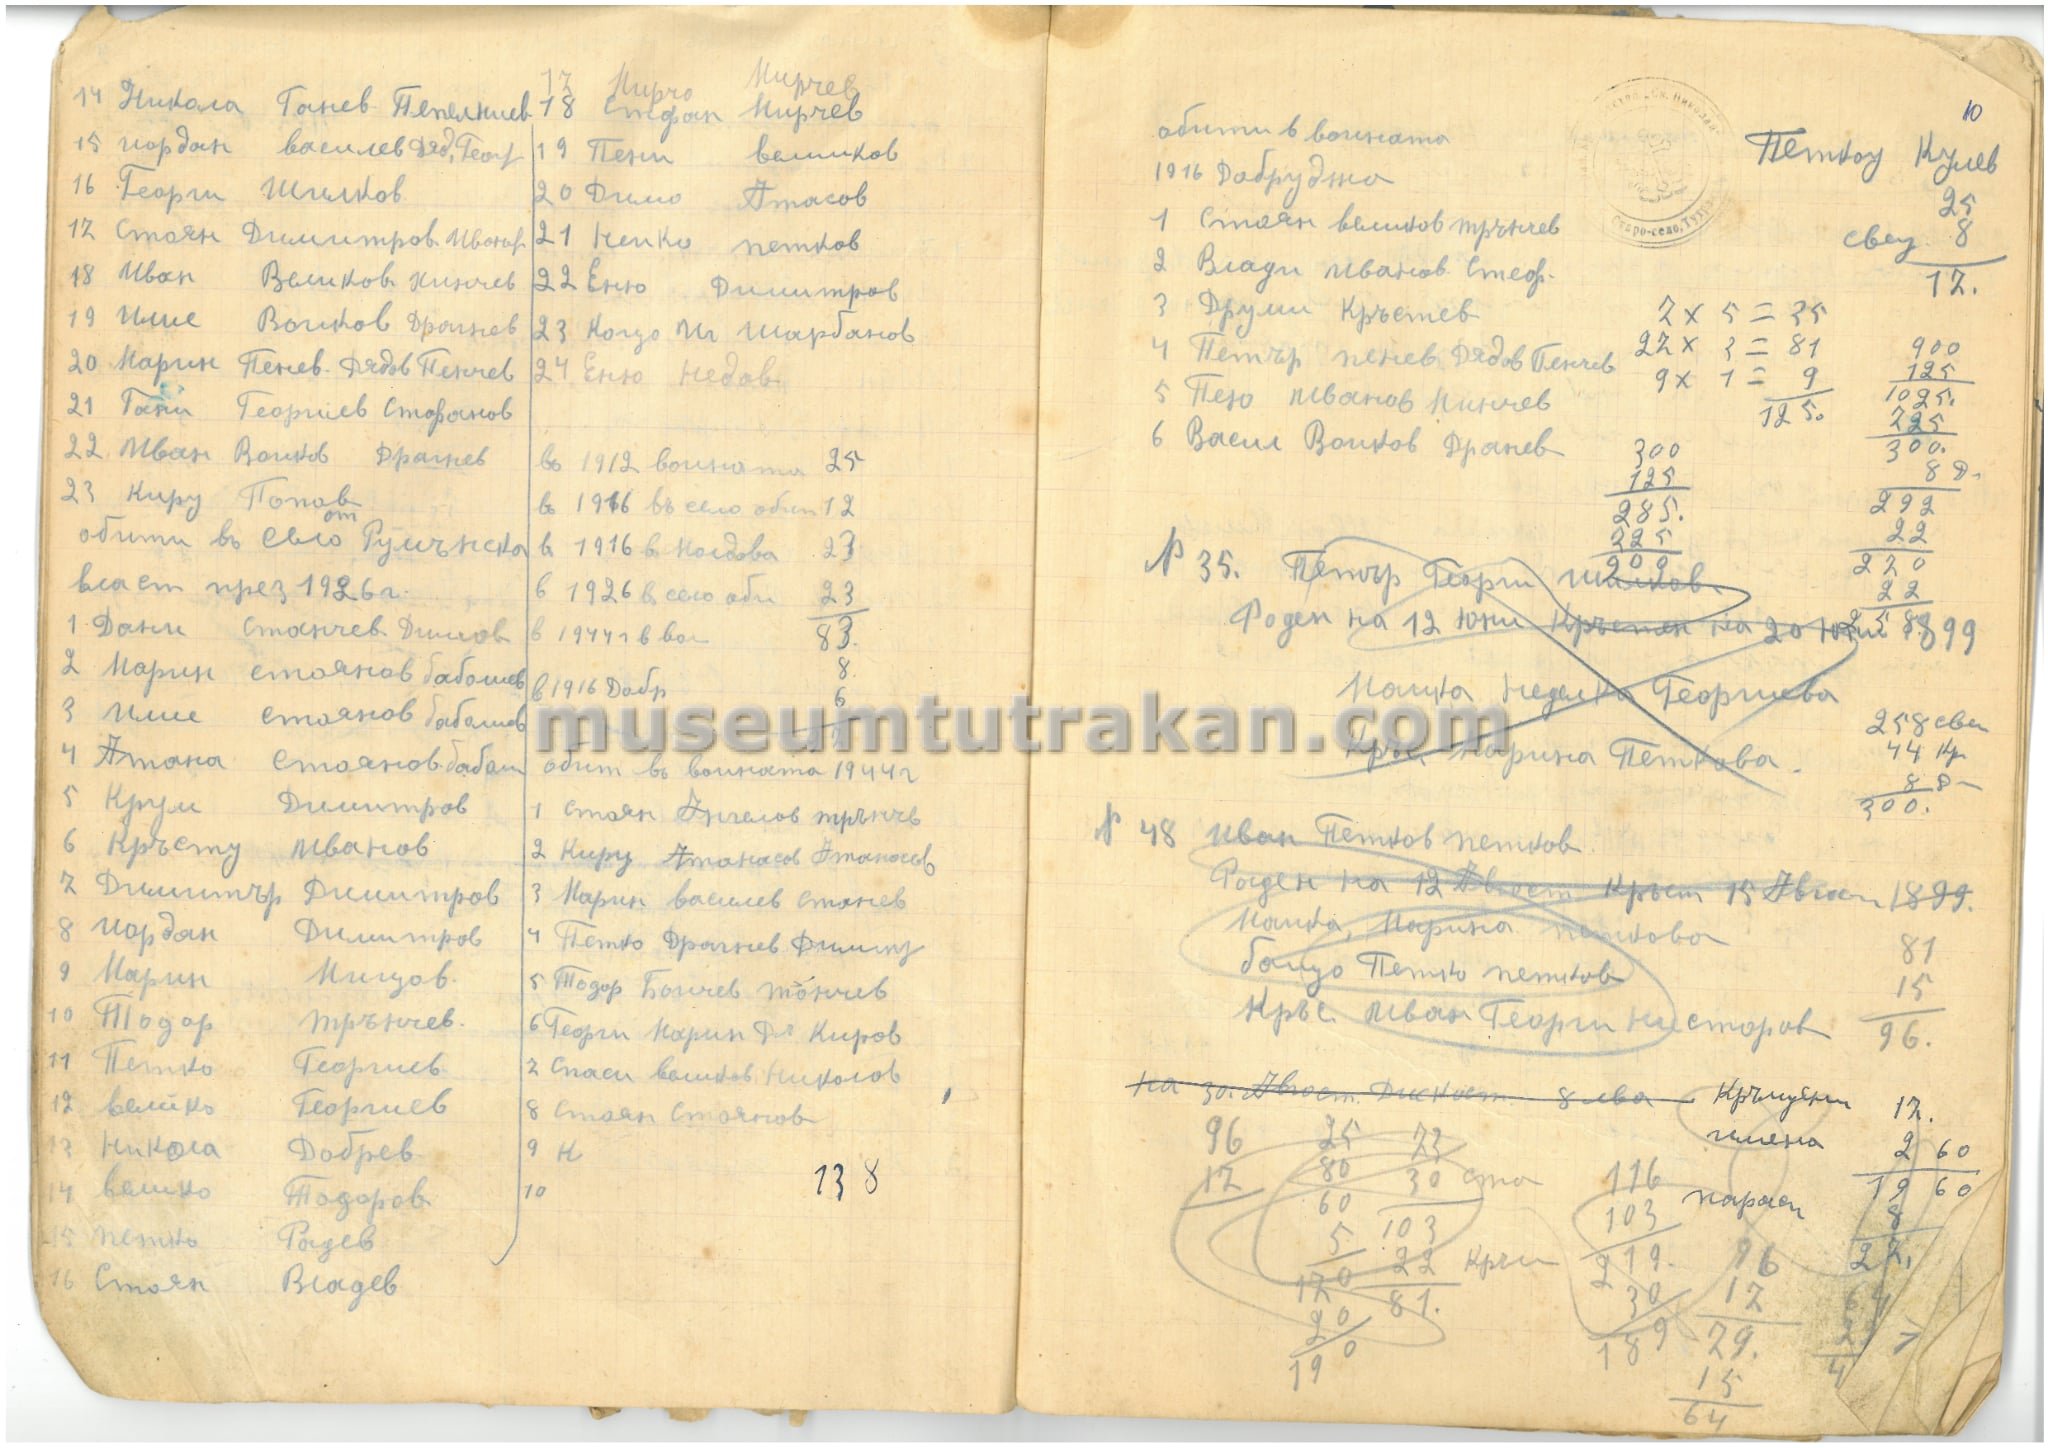 14 Никола Ганев Пепелниев
15 иордан василев Дяд. Георг
16 Георги Шилков
17 Стоян Димитров Иванор
18 Иван Великов Минчев
19 Илие Волков Драгнев
20 Марин Пенев Дядов Пенчев
21 Гани Георгиев Стофанов
22 Иван Волков Драгнев
23 Киру Попов
обити въ Село от Румънска
власт през 1926 г.
1 Дани Станчев Димов
2 Марин стоянов бабалиев
3 Илие стоянов бабалиев
4 Атана Стоянов бабали
5 Крум Димитров
6 Кръсту Иванов
7 Димитър Димитров
8 иордан Димитров
9 Марин Мицов
10 Тодор Трънчев
11 Петко Георгиев
12 велико Георгиев
13 Никола Добрев
14 велико Тодоров
15 петко Радев
16 Стоян Владев
17 Мирчо Мирчев
18 Стефан Мирчев
19 Пени великов
20 Димо Атасов
21 Неико петков
22 Еню Димитров
23 Коцо Ил Шарбанов
24 Еню Недов
въ 1912 воината 25
в 1916 въ село обит 12
в 1916 в Молдова 23
в 1926 в село оби 23
83.
в 1944 г в вои 8.
в 1916 Добр 6
обит въ воината 1944 г
1 Стоян Ангелов трънчв
2 Киру Атанасов Атанасов
3 Марин василев Станев
4 Петко Драгнев Димит
5 Тодор Бончев тончев
6 Георги Марин Дг Киров
7 Спаси великов Николов
8 Стоян Стоянов
9 Н
10
138
10
обити в воината
1916 Добруджа
1 Стоян великов трънчев
2 Влади Иванов Стеф.
3 Друми Кръстев
4 Петър пенев Дядов Пенчев
5 Пею Иванов Минчев
6 Васил Волков Дранев
Петкоу Кулев
25
свещ 8
17.
7 x 5 = 35
27 x 3 = 81
9 x 1 = 9
125.
900
125
1025.
725
300.
8 Д.
292
22
270
22
258
300
125
285.
225
200
№ 35. Петър Георги Шилков
Роден на 12 юни Кръстен на 20 юни 1899
Маика Неделка Георгиева
Кръс. Марина Петкова.
258 све
44 кр
8 Д
300.
№ 48 Иван Петков петков.
Роден на 12 Август Кръст 15 Август 1899.
Маика, Марина петкова
бащо Петко петков
Кръс. Иван Георги Нисторов
81
15
96.
на 30. Авгост. Дискост 8 лева
Кръщени 17.
имена 2 60
19 60
параси 8
27.
96
17
25
80
60
5
170
20
190
73
30 ста
103
22 Кръщ
81.
116
103
219.
30
189
96
17
79.
15
64
museumtutrakan.com